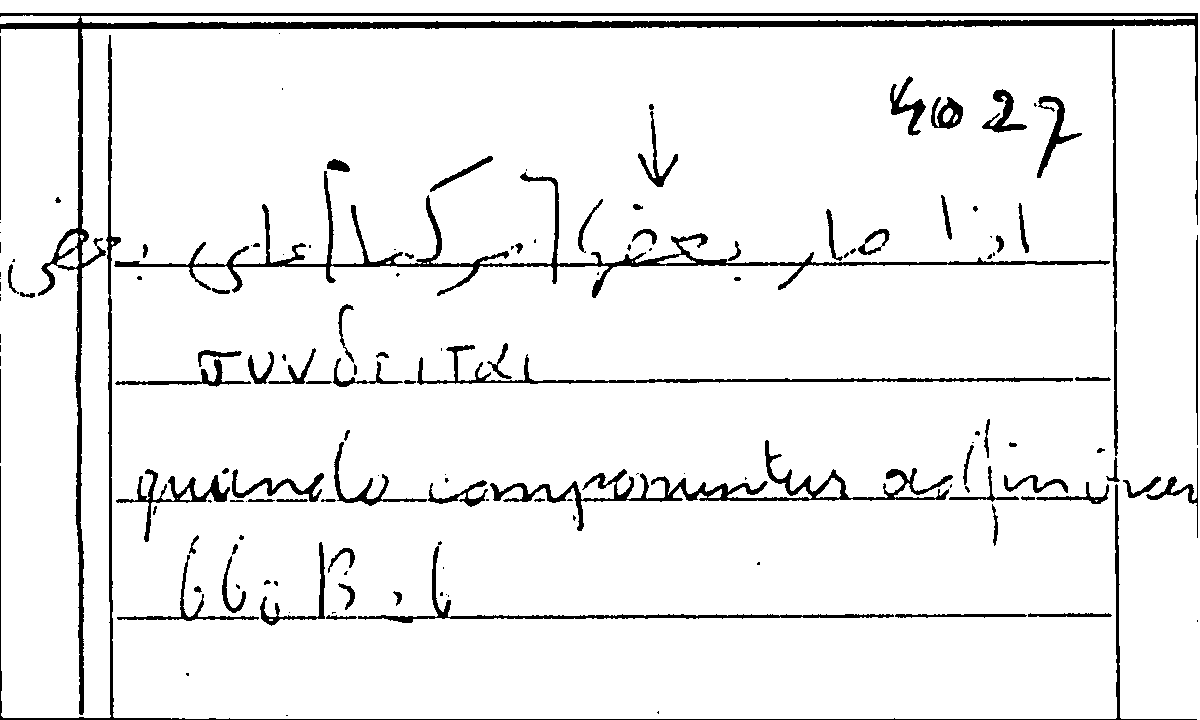 4027
اذا صار بعضها [مركبا] على بعض
συνδειται
quando componuntur ad